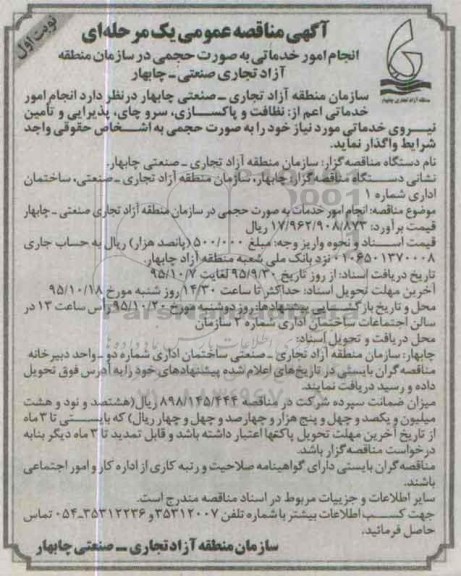 نوبت اول
آگهی مناقصه عمومی یک مرحله‌ای
انجام امور خدماتی به صورت حجمی در سازمان منطقه
آزاد تجاری صنعتی ـ چابهار
سازمان منطقه آزاد تجاری ـ صنعتی چابهار درنظر دارد انجام امور
خدماتی اعم از: نظافت و پاکسازی، سرو چای، پذیرایی و تأمین
نیروی خدماتی مورد نیاز خود را به صورت حجمی به اشخاص حقوقی واجد
شرایط واگذار نماید.
نام دستگاه مناقصه گزار: سازمان منطقه آزاد تجاری ـ صنعتی چابهار.
نشانی دستگاه مناقصه گزار: چابهار، سازمان منطقه آزاد تجاری ـ صنعتی، ساختمان
اداری شماره ۱
موضوع مناقصه: انجام امور خدمات به صورت حجمی در سازمان منطقه آزاد تجاری صنعتی ـ چابهار
قیمت برآورد: ۱۷/۹۶۲/۹۰۸/۸۷۳ ریال
قیمت اسناد و نحوه واریز وجه: مبلغ ۵۰۰/۰۰۰ (پانصد هزار) ریال به حساب جاری
۰۱۰۶۵۰۱۳۷۰۰۰۸ نزد بانک ملی شعبه منطقه آزاد چابهار.
تاریخ دریافت اسناد: از روز تاریخ ۹۵/۹/۳۰ لغایت ۹۵/۱۰/۷
آخرین مهلت تحویل اسناد: حداکثر تا ساعت ۱۴/۳۰ روز شنبه مورخ ۹۵/۱۰/۱۸
محل و تاریخ بازگشایی پیشنهادها: روز دوشنبه مورخ ۹۵/۱۰/۲۰ رأس ساعت ۱۳ در
سالن اجتماعات ساختمان اداری شماره ۲ سازمان
محل دریافت و تحویل اسناد:
چابهار: سازمان منطقه آزاد تجاری ـ صنعتی ساختمان اداری شماره دو ـ واحد دبیرخانه
مناقصه گران بایستی در تاریخ‌های اعلام شده پیشنهادهای خود را به آدرس فوق تحویل
داده و رسید دریافت نمایند.
میزان ضمانت سپرده شرکت در مناقصه ۸۹۸/۱۴۵/۴۴۴ ریال (هشتصد و نود و هشت
میلیون و یکصد و چهل و پنج هزار و چهارصد و چهل و چهار ریال) که بایستی تا ۳ ماه
از تاریخ آخرین مهلت تحویل پاکتها اعتبار داشته باشد و قابل تمدید تا ۳ ماه دیگر بنابه
درخواست مناقصه گزار باشد.
مناقصه گران بایستی دارای گواهینامه صلاحیت و رتبه کاری از اداره کار و امور اجتماعی
باشند.
سایر اطلاعات و جزییات مربوط در اسناد مناقصه مندرج است.
جهت کسب اطلاعات بیشتر با شماره تلفن ۳۵۳۱۲۰۰۷ و ۳۵۳۱۲۲۳۶-۰۵۴ تماس
حاصل فرمائید.
سازمان منطقه آزاد تجاری ـ صنعتی چابهار